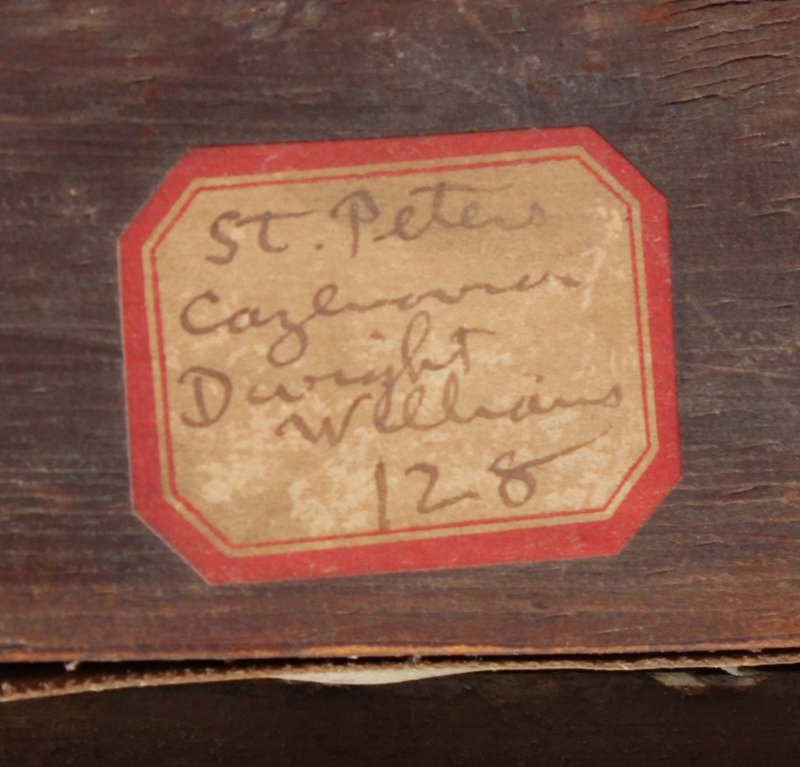 St. Peters
Cazenovia
Dwight
Williams
128